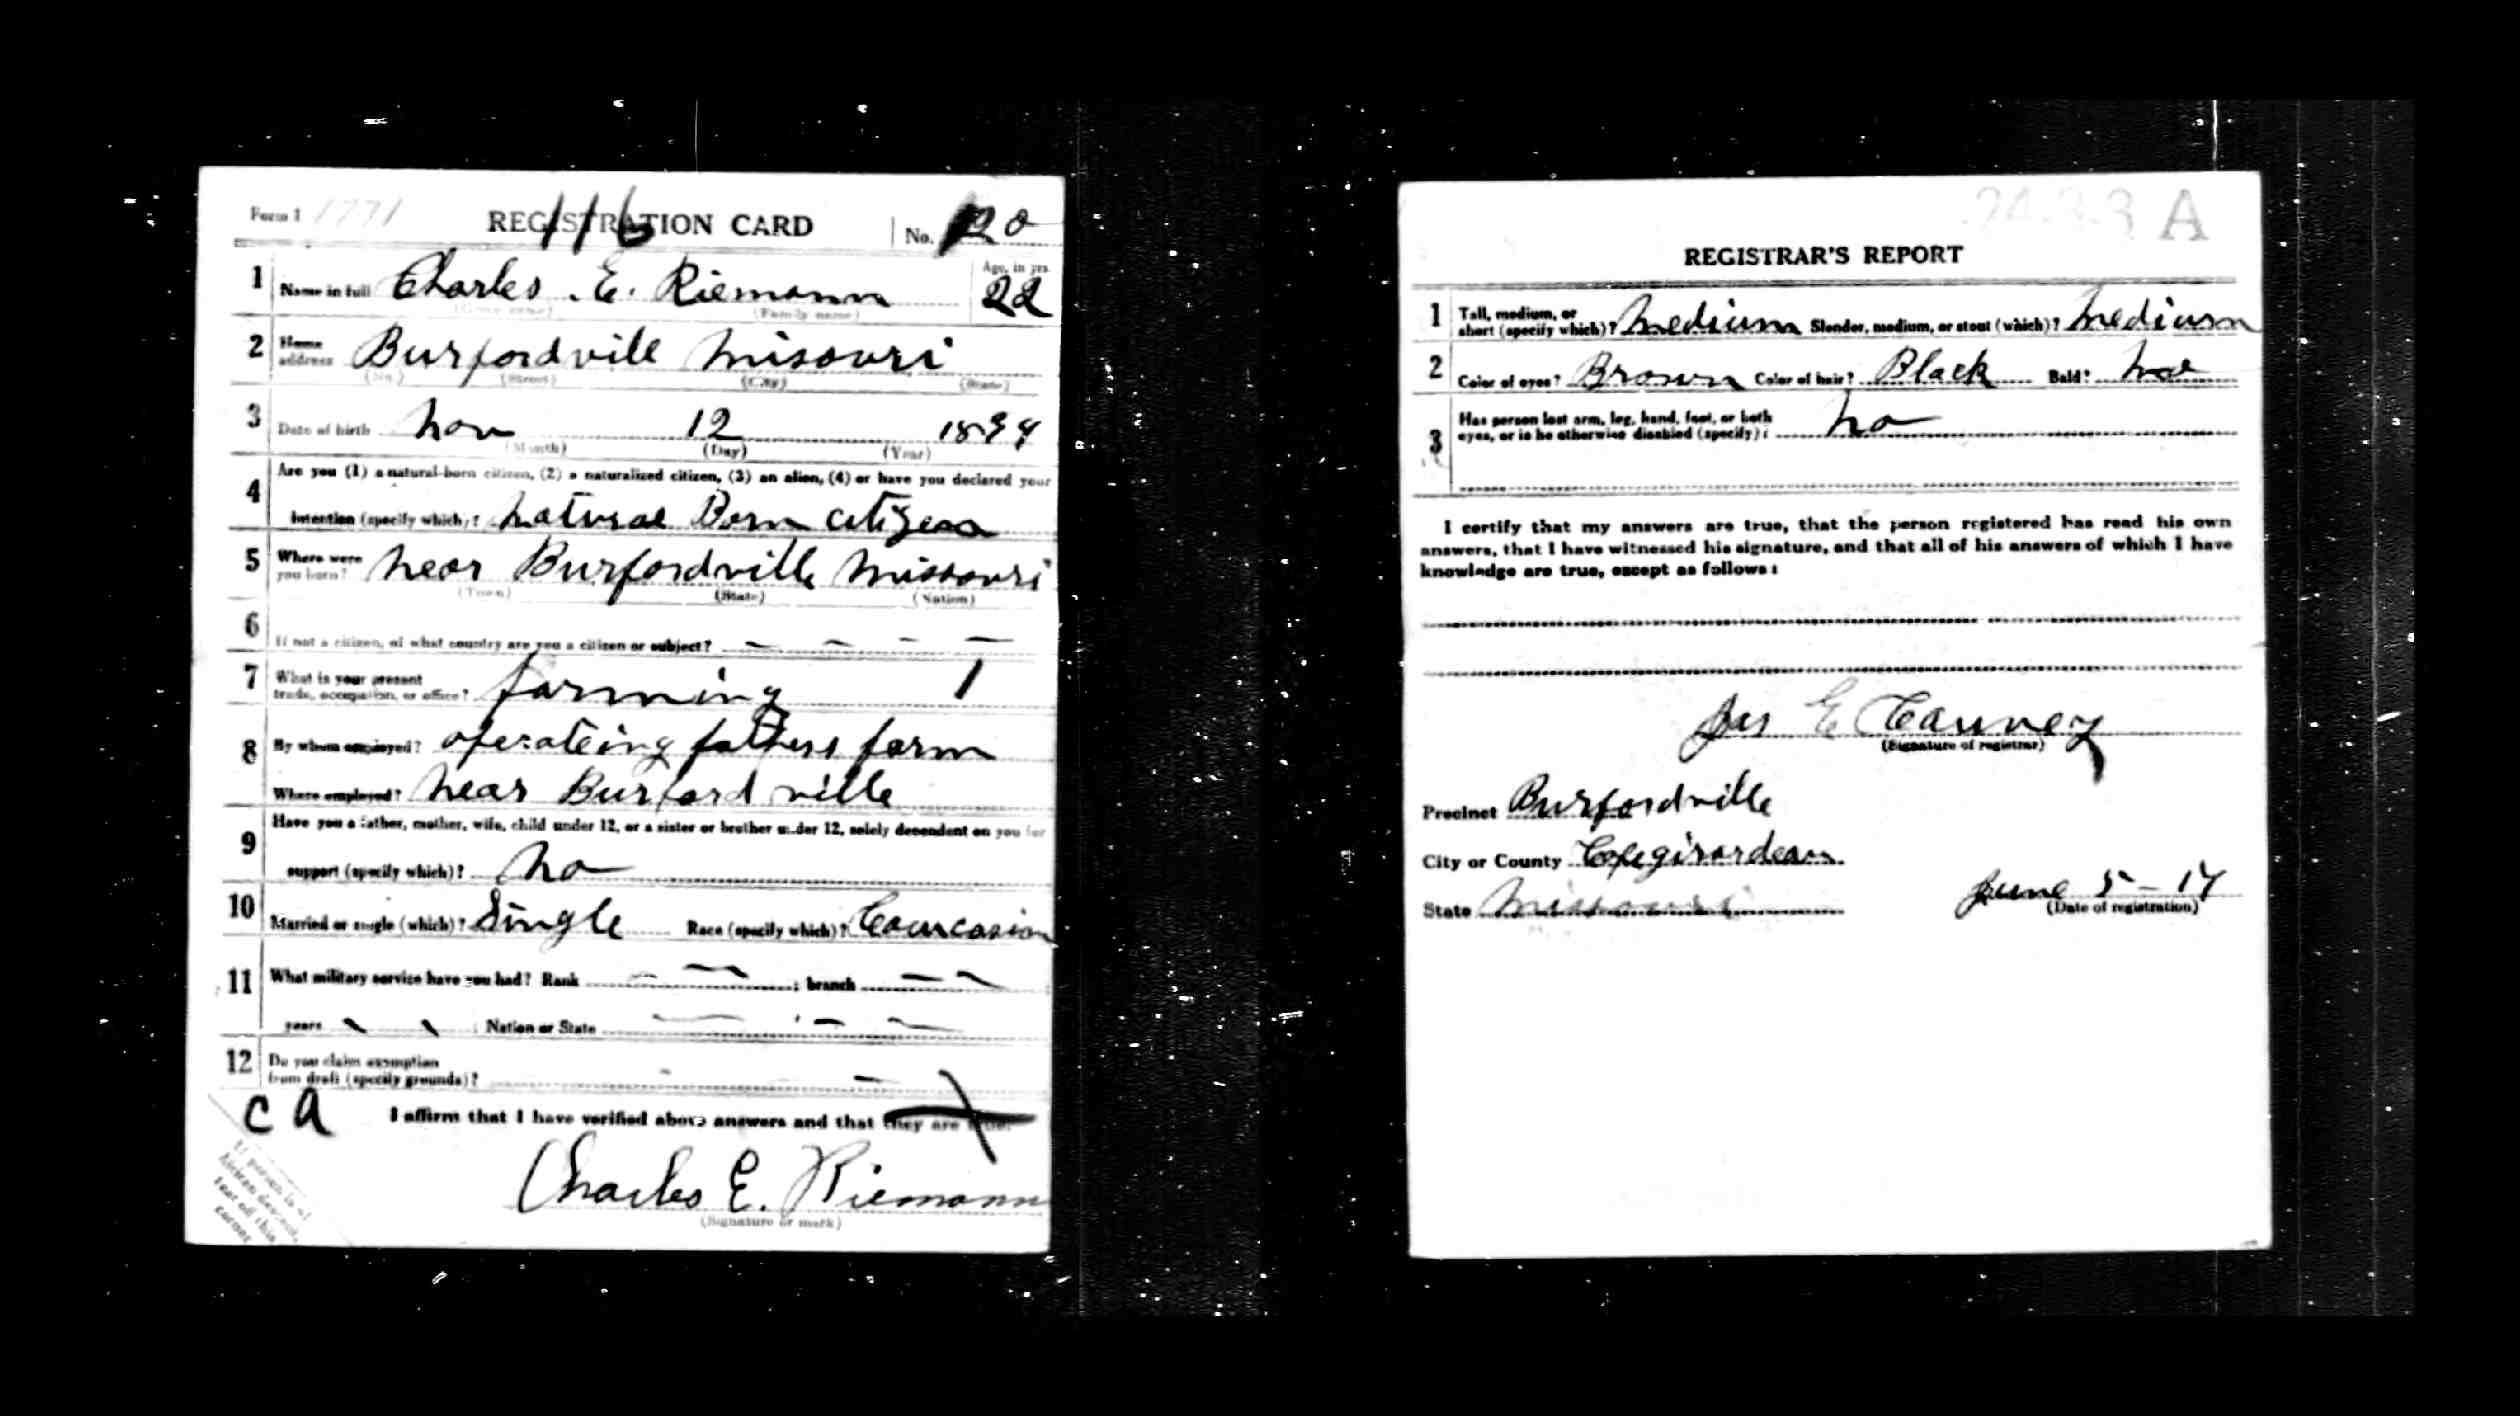 Form 1 1771 REGISTRATION CARD No. 120
116
1 Name in full Charles . E. Riemann Age, in yrs. 22
(Given name) (Family name)
2 Home address Burfordvill Misouri
(No.) (Street) (City) (State)
3 Date of birth Nov 12 1894
(Month) (Day) (Year)
4 Are you (1) a natural-born citizen, (2) a naturalized citizen, (3) an alien, (4) or have you declared your
intention (specify which)? Natural Born citizen
5 Where were you born? Near Burfordville Missouri
(Town) (State) (Nation)
6 If not a citizen, of what country are you a citizen or subject? – – – –
7 What is your present trade, occupation, or office? farming 1
8 By whom employed? operateing fathers farm
Where employed? Near Burfordville
9 Have you a father, mother, wife, child under 12, or a sister or brother under 12, solely dependent on you for
support (specify which)? No
10 Married or single (which)? Single Race (specify which)? Caurcasian
11 What military service have you had? Rank – – ; branch – –
years – – ; Nation or State – – –
12 Do you claim exemption
from draft (specify grounds)? – –
C A I affirm that I have verified above answers and that they are true.
Charles E. Riemann
(Signature or mark)
If person is of
African descent,
tear off this
corner
2433 A
REGISTRAR'S REPORT
1 Tall, medium, or
short (specify which)? Medium Slender, medium, or stout (which)? Medium
2 Color of eyes? Brown Color of hair? Black Bald?
3 Has person lost arm, leg, hand, foot, or both
eyes, or is he otherwise disabled (specify)? No
I certify that my answers are true, that the person registered has read his own
answers, that I have witnessed his signature, and that all of his answers of which I have
knowledge are true, except as follows:
Jas E
(Signature of registrar)
Precinct Burfordville
City or County Capegirardeau
State Missouri June 5 – 17
(Date of registration)